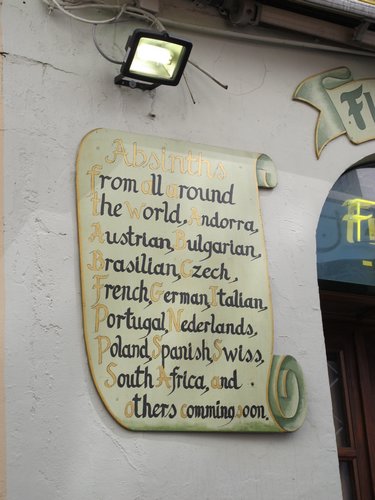 Absinths
from all around
the World, Andorra,
Austrian, Bulgarian,
Brasilian, Czech,
French, German, Italian,
Portugal, Nederlands,
Poland, Spanish, Swiss,
South Africa, and
others comming soon.